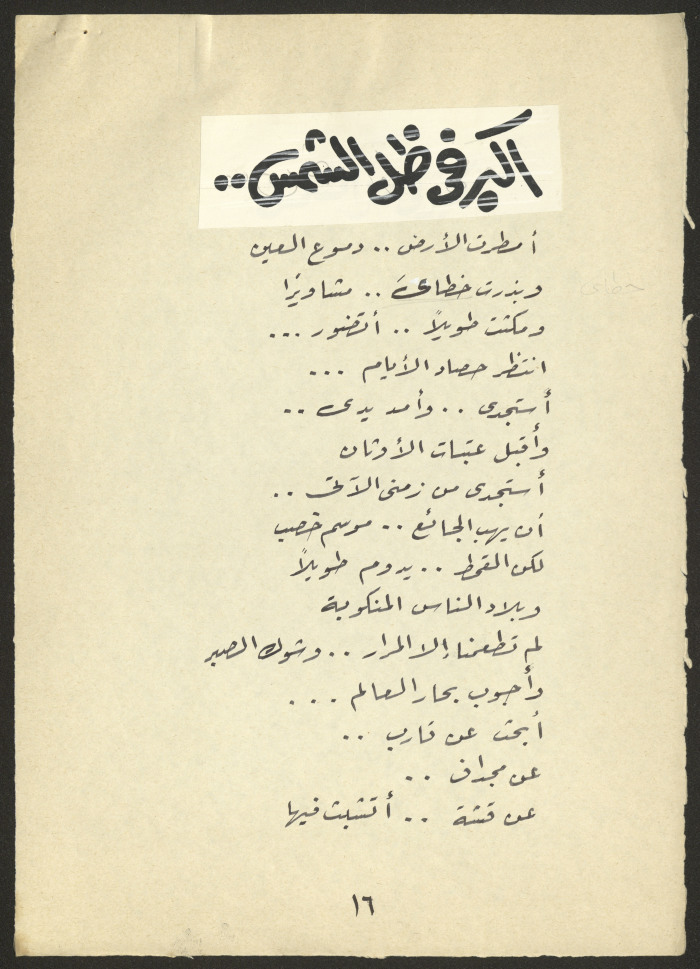 أكبر في ظل الشمس..
أمطرت الأرض .. دموع العين
وبذرت خطاىَ .. مشاويرًا
خطاي
ومكثت طويلاً .. أتضور ...
انتظر حصاد الأيام ...
أستجدى .. وأمد يدى ..
وأقبل عتبات الأوثان
أستجدى من زمنى الآتى ..
أن يهب الجائع .. موسم خصب
لكن القحط .. يدوم طويلاً
وبلاد الناس المنكوبة
لم تطعمنا إلا المرار .. وشوك الصبر
وأجوب بحار العالم ...
أبحث عن قارب ..
عن مجداف ..
عن قشة .. أتشبث فيها
١٦